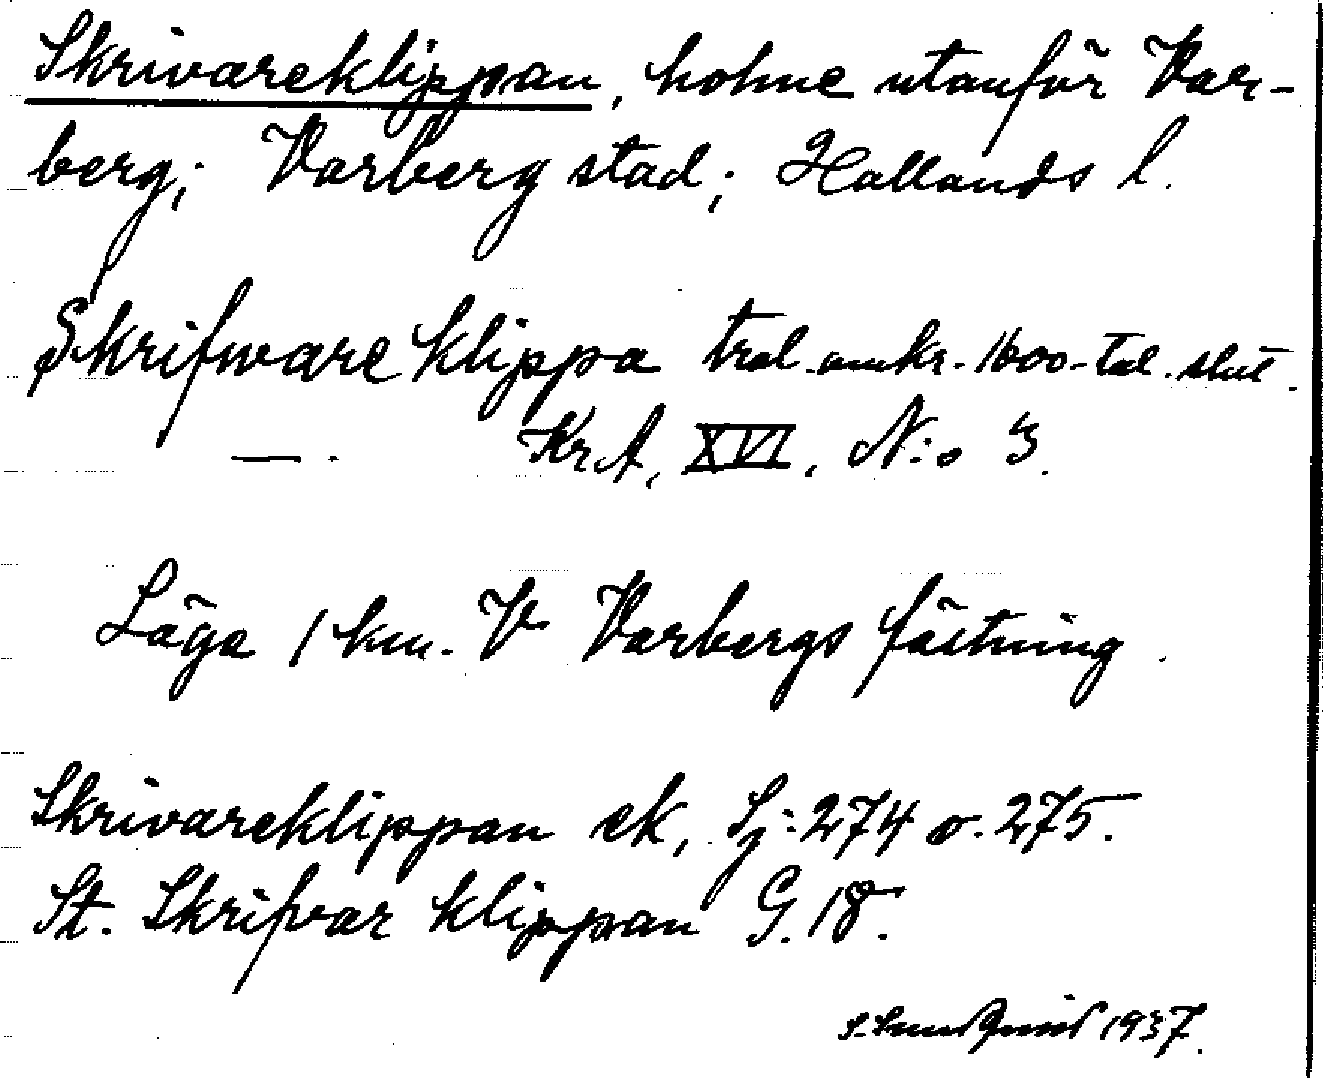 Skrivareklippan, holme utanför Var-
berg; Varberg stad; Hallands l.
Skrifware klippa trol. omkr. 1600-tal. slut.
—. Kr A, XVI, N:o 3.
Läge 1 km. V Varbergs fästning.
Skrivareklippan ek, Sj: 274 o. 275.
St. Skrifvar klippan G. 18.
1937.